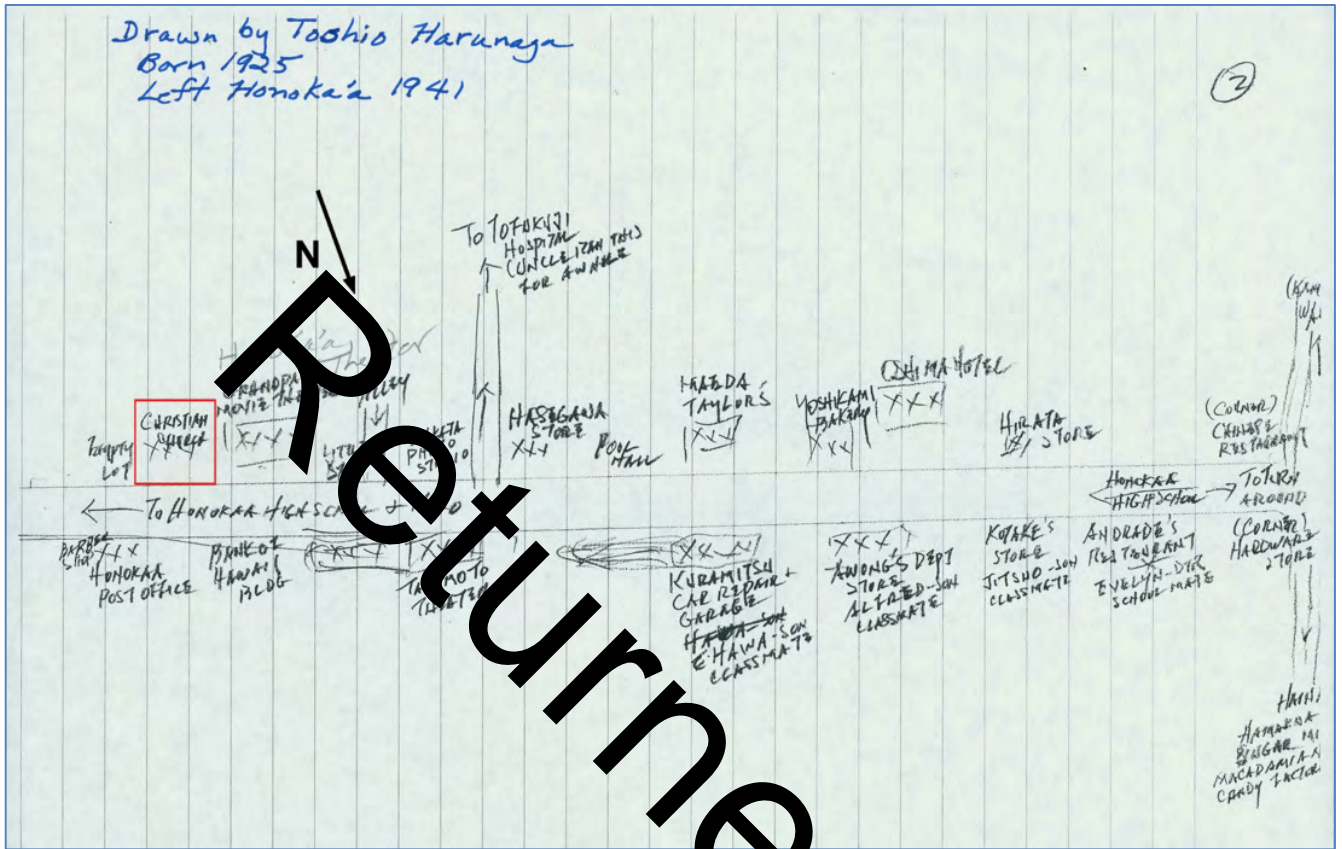 Drawn by Toshio Harunaga
Born 1925
Left Honoka'a 1941
2
N
To TOFUKUJI
HOSPITAL
(UNCLE RAN THIS
FOR AWHILE
EMPTY
LOT
CHRISTIAN
CHURCH
XXX
GRANDPA
MOVIE
XXX
ALLEY
PHOTO
STUDIO
HASEGAWA
STORE
XXX
POOL
HALL
MAEDA
TAYLOR'S
XXX
YOSHIKAMI
BAKERY
XXX
OSHIMA HOTEL
XXX
HIRATA
STORE
(CORNER)
CHINESE
RESTAURANT
TO HONOKAA HIGH SCHOOL
HONOKAA
HIGH SCHOOL
TO TURN
AROUND
BARBER
SHOP
XXX
HONOKAA
POST OFFICE
BANK OF
HAWAII
BLDG
XXX
XXX
MOTO
THEATER
XXX
KURAMITSU
CAR REPAIR +
GARAGE
E. HAWA-SON
CLASSMATE
XXX
AWONG'S DEPT
STORE
ALFRED-SON
CLASSMATE
KOTAKE'S
STORE
JITSUO-SON
CLASSMATE
ANDRADE'S
RESTAURANT
EVELYN-DTR
SCHOOL MATE
(CORNER)
HARDWARE
STORE
HAMAKUA
SUGAR MI
MACADAMIA N
CANDY FACTOR
Returne